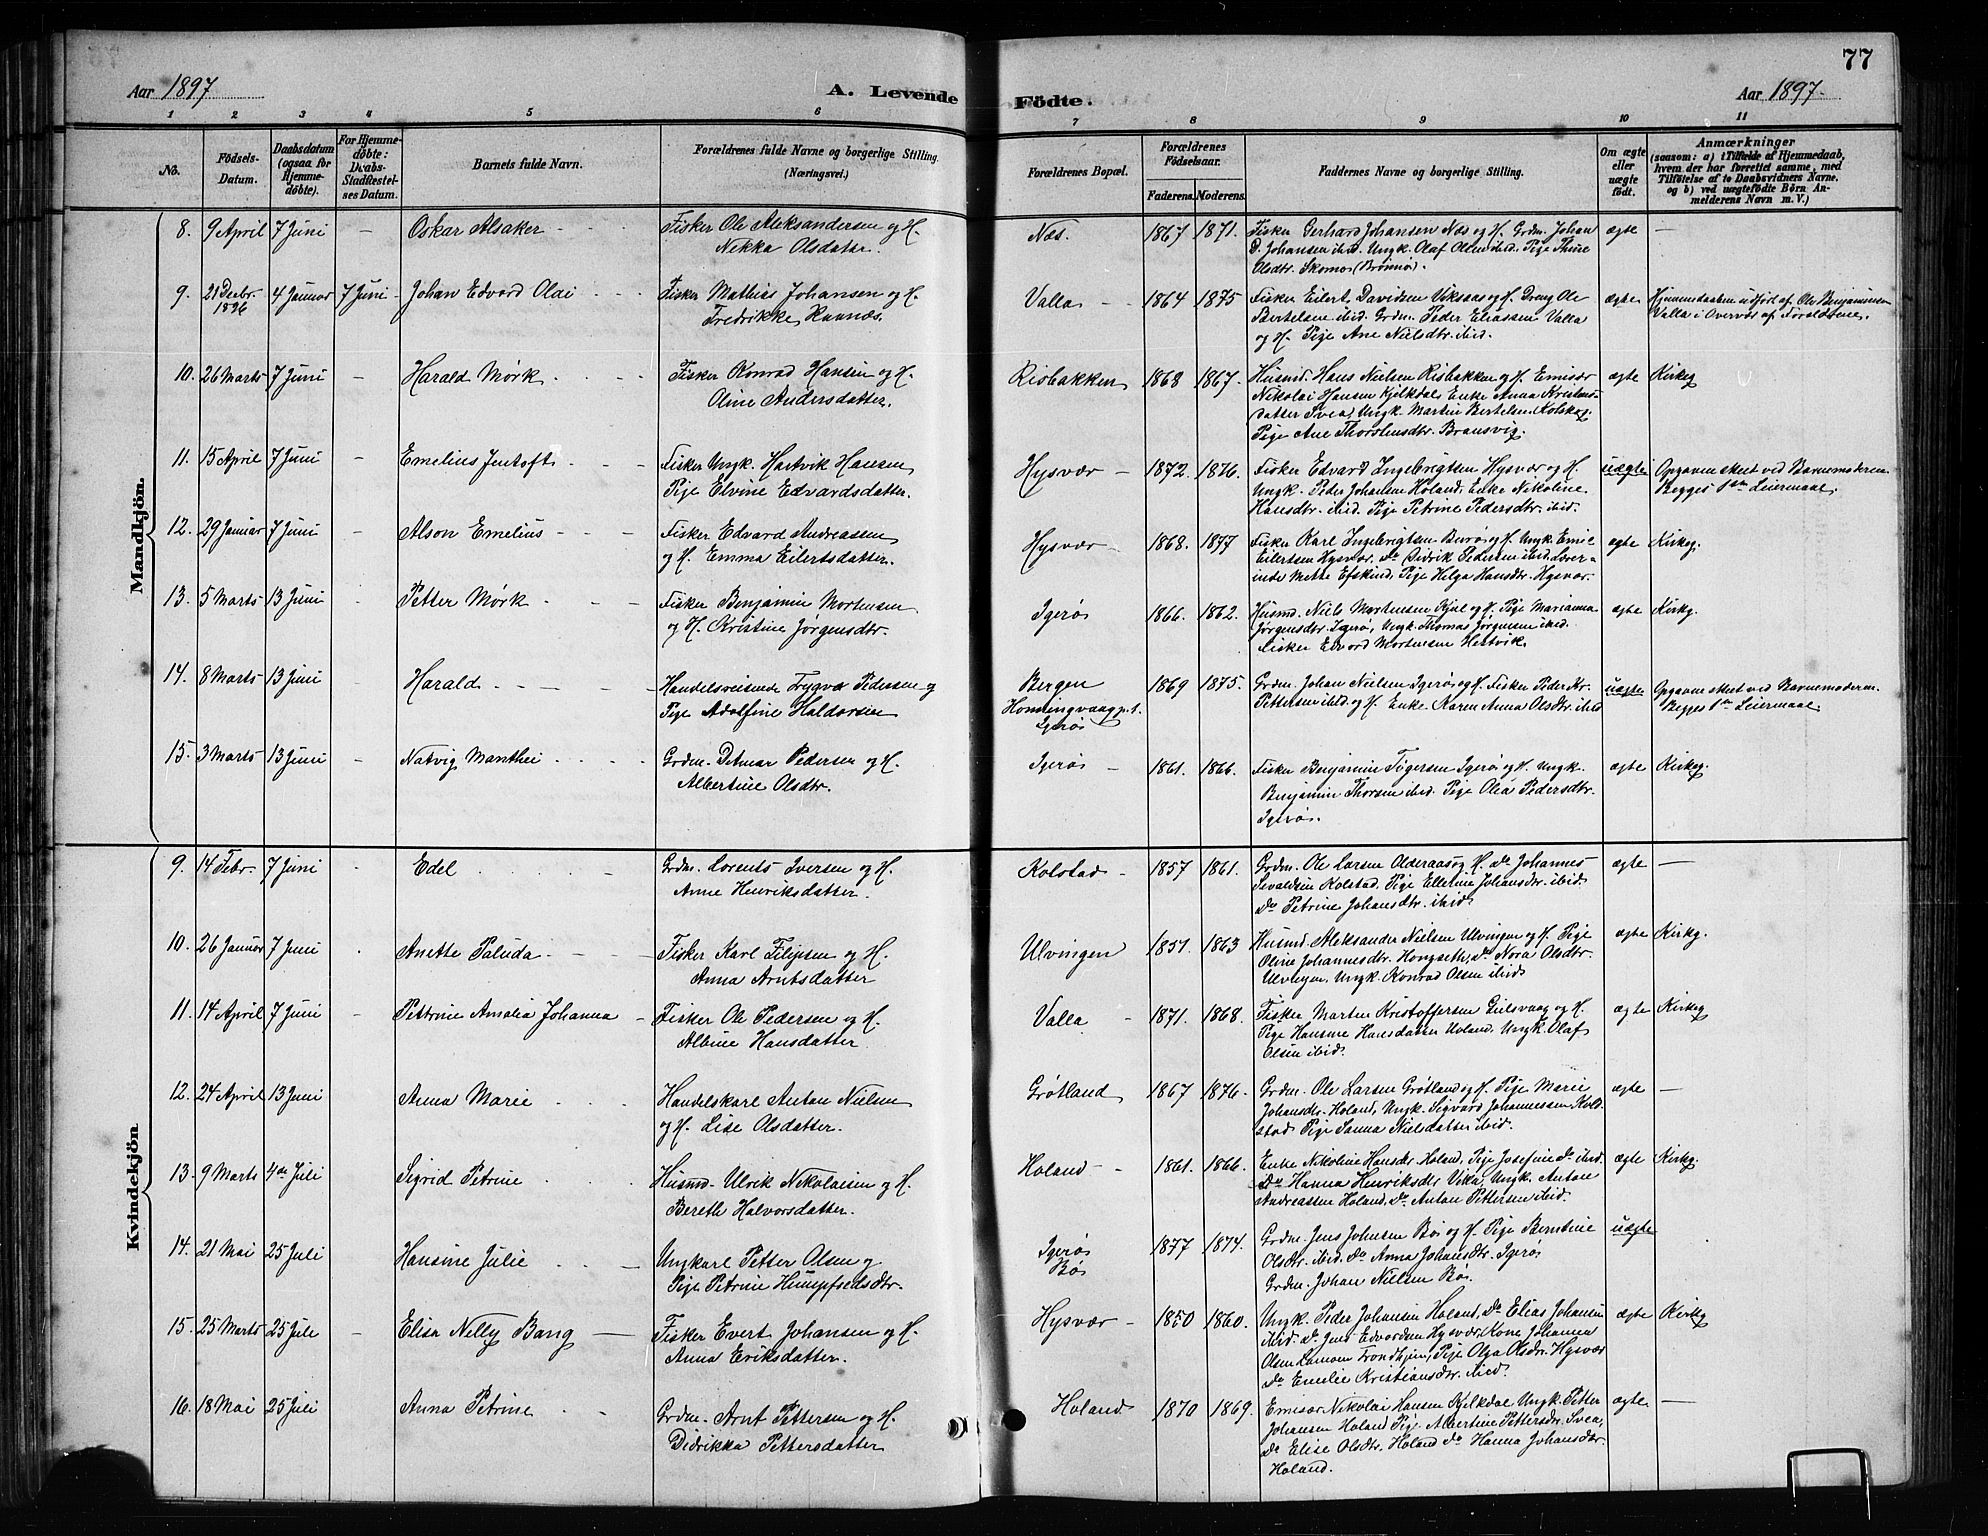 77
Aar 1897
A. Levende Födte.
Aar 1897.
1 2 3 4 5 6 7 8 9 10 11
No.
Födsels-Datum.
Daabsdatum (ogsaa for Hjemmedöbte).
For Hjemmedöbte: Daabs-Stadfæstelses Datum.
Barnets fulde Navn.
Forældrenes fulde Navne og borgerlige Stilling. (Næringsvei.)
Forældrenes Bopæl.
Forældrenes Födselsaar.
Faderens. Moderens.
Faddernes Navne og borgerlige Stilling.
Om ægte eller uægte födt.
Anmærkninger
(saasom: a) i Tilfælde af Hjemmedaab, hvem der har forrettet samme, med Tilföielse af to Daabsvidners Navne, og b) ved uægtefödte Börn Anmelderens Navn m. V.)
Mandkjön.
8. 9 April 7 Juni - Oskar Alsaker - - Fisker Ole Aleksandersen og H. Næs. 1867 1871. Fisker Gerhard Johansen Næs og H. Grdm. Johan ægte -
Nekka Olsdatter. D. Johansen ibid. Ungk. Olaf Olsen ibid. Pige Thine
Olsdtr. Skomo (Brønnø).
9. 21 Decbr. 4 Januar 7 Juni - Johan Edvard Oldi - - Fisker Mathias Johansen og H. Valla - 1864 1875 Fisker Eilert Davidsen Viksaas og H. Dreng Ole ægte Hjemmedaaben udført af Ole Benjaminsen
1896 Fredrikke Ravnæs. Bertelsen ibid. Grdm. Peder Eliassen Valla Valla i Overvær af Forældrene.
og H. Pige Ane Nielsdtr. ibid.
10. 26 Marts 7 Juni - Harald Mørk - - Fisker Konrad Hansen og H. Risbakken 1868 1867. Husmd. Hans Nielsen Risbakken og H. Emissær ægte Kirkeg.
Oline Andersdatter. Nikolai Hansen Kjelkdal, Enke Anna Kristens-
datter Svea, Ungk. Martin Bertelsen Kolskog.
Pige Ane Thorstensdtr. Bransvig.
11. 15 April 7 Juni - Emelius Jentoft - - Fisker Ungk. Hartvik Hansen Hysvær - 1872. 1876. Fisker Edvard Ingebrigtsen Hysvær og H. uægte Opgaven skeet ved Barnemoderen
Pige Elvine Edvardsdatter. Ungk. Peder Johansen Holand, Enke Nikoline Begges 1ste Leiermaal.
Hansdtr. ibid. Pige Petrine Pedersdtr. ibid.
12. 29 Januar 7 Juni - Alson Emelius - - Fisker Edvard Andreassen Hysvær 1868. 1877 Fisker Karl Ingebrigtsen Burø og H. Ungk. Emil ægte Kirkeg.
og H. Emma Eilertsdatter. Eilertsen Hysvær. Do Didrik Pedersen ibid.
inde Mette Efskind, Pige Helga Hansdtr. Hysvær.
13. 5 Marts 13 Juni - Petter Mørk - - Fisker Benjamin Mortensen Igerø 1866. 1862. Husmd. Niels Mortensen og H. Pige Marianna ægte Kirkg.
og H. Kristine Jørgensdtr. Jørgensdtr. Igerø, Ungk. Thomas Jørgensen ibid.
Fisker Edvard Mortensen Hestvik.
14. 8 Marts 13 Juni - Harald - - Handelsreisende Trygve Pedersen og Bergen 1869 1875. Grdm. Johan Nielsen Igerø og H. Fisker Peder Kr. uægte Opgaven skeet ved Barnemoderen.
Pige Adolfine Haldorsen Honningvaag p.t. Pettersen ibid. og H. Enke Karen Anna Olsdtr. ibid Begges 1ste Leiermaal.
Igerø
15. 3 Marts 13 Juni Natvig Manthei - - Grdm. Detmar Pedersen og H. Igerø - 1861. 1866. Fisker Benjamin Igerø og H. Ungk. ægte Kirkeg.
Albertine Olsdtr. Benjamin Thorsen ibid. Pige Olea Pedersdtr.
Igerø.
Kvindekjön
9. 14 Febr. 7 Juni Edel - - Grdm. Lorents Iversen og H. Kolstad - 1857 1861. Grdm. Ole Larsen Olderaas og H. Do Johannes ægte -
Anne Henriksdatter. Sevaldsen Kolstad. Pige Elletine Johansdtr. ibid
Do Petrine Johansdtr. ibid.
10. 26 Januar 7 Juni - Anette Paluda - - Fisker Karl Filipsen og H. Ulvingen 1851. 1863 Husmd. Aleksander Nielsen Ulvingen og H. Pige ægte Kirkg.
Anna Arntsdatter Oline Johannesdtr. Hongseth, Do Nora Olsdtr.
Ulvingen, Ungk. Konrad Olsen ibid
11. 14 April 7 Juni - Pettrine Amalia Johanna - Fisker Ole Pedersen og H. Valla - 1871. 1868. Fisker Marten Kristoffersen og H. ægte Kirkeg
Albine Hansdatter Pige Hansine Hansdatter Holand. Ungk. Olaf
Olsen ibid.
12. 24 April 13 Juni Anna Marie - - Handelskarl Anton Nielsen Grøtland 1867 1876. Grdm. Ole Larsen Grøtland og H. Pige Marie ægte -
og H. Lise Olsdatter. Johansdtr. Holand, Ungk. Sigvard Johannessen Kold-
stad Pige Sanna Nielsdatter ibid.
13. 9 Marts 4de Juli Sigrid Petrine - - Husmd. Ulrik Nikolaisen og H. Holand - 1861. 1866. Enke Nikoline Hansdtr. Holand. Pige Josefine Do ibid. ægte Kirkg.
Bereth Halvorsdatter. Do Hanna Henriksdtr. Vika, Ungk. Anton
Andreassen Holand. Do Anton Pettersen ibid.
14. 21 Mai 25 Juli Hansine Julie - - Ungkarl Petter Olsen og Igerø 1877 1874. Grdm. Jens Johnsen Bø og H. Pige Berntine uægte
Pige Petrine Humpfredsdtr. Bø Olsdtr. ibid. Do Anna Johansdtr. Igerø
Grdm. Johan Nielsen Bø.
15. 25 Marts 25 Juli - Elisa Nelly Bang - Fisker Evert Johansen og H. Hysvær - 1850 1860. Ungk. Peder Johansen Holand, Do Elias Johansen ægte Kirkg
Anna Eriksdatter. ibid. Do Jens Edvardsen Hysvær, Kone Johanna
Olsen Trondhjem, Pige Olga Olsdtr. Hysvær
Do Emelie Kristiansdtr. ibid
16. 18 Mai 25 Juli Anna Petrine - - Grdm. Arnt Pettersen og H. Holand 1870 1869. Emissær Nikolai Hansen Kjelkdal Ungk. Petter ægte -
Didrikka Pettersdatter Johansen Holand Pige Albertine Pettersdtr. Svea,
Do Elise Olsdtr. Holand Do Hanna Johansdtr.
Holand.